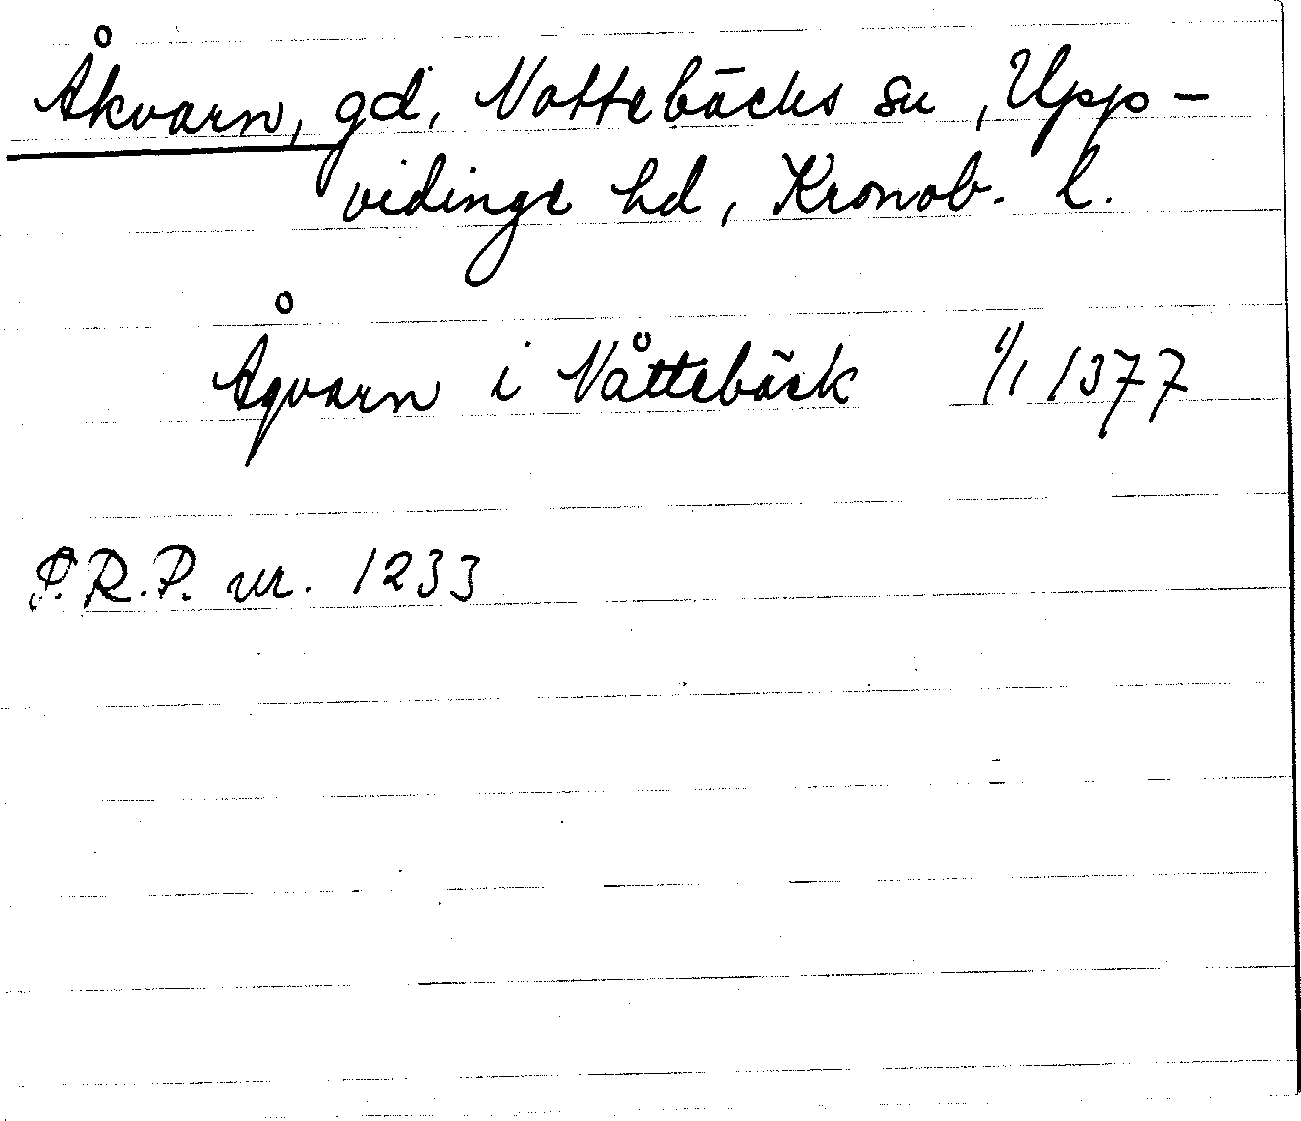 Åkvarn, gd, Nottebäcks sn, Upp-
vidinge hd, Kronob. l.
Åqvarn i Nåttebäck 1/1 1377
S.R.P. nr. 1233